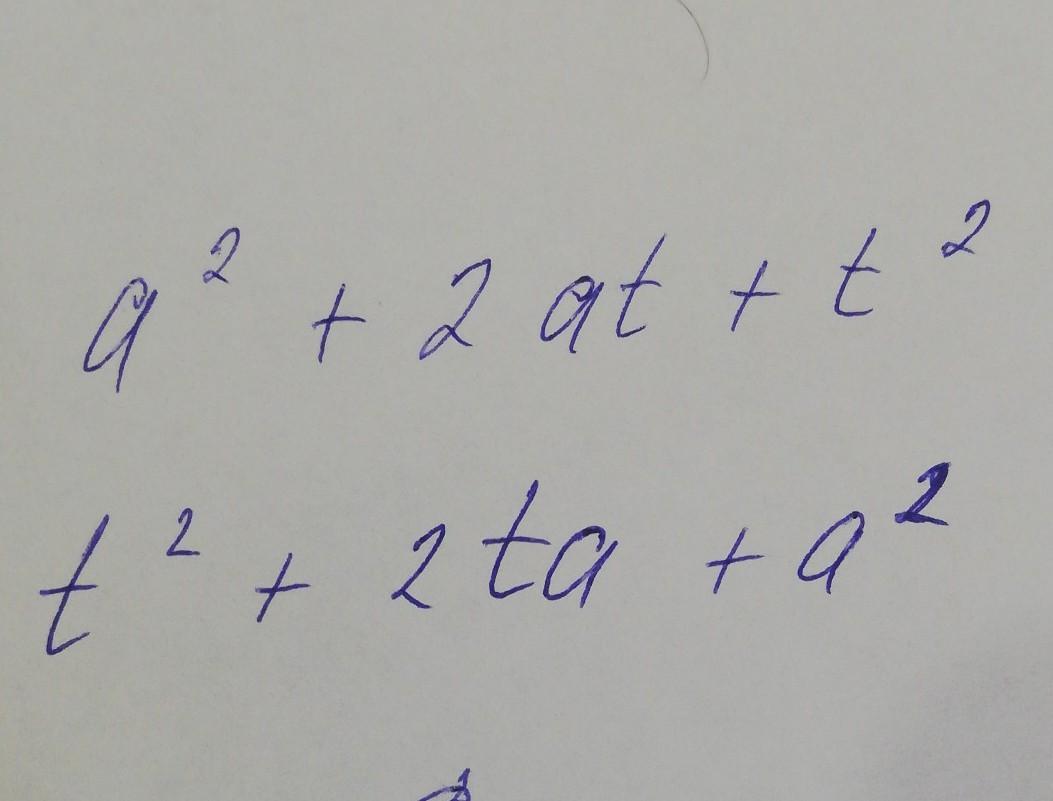 a² + 2at + t²
t² + 2ta + a²